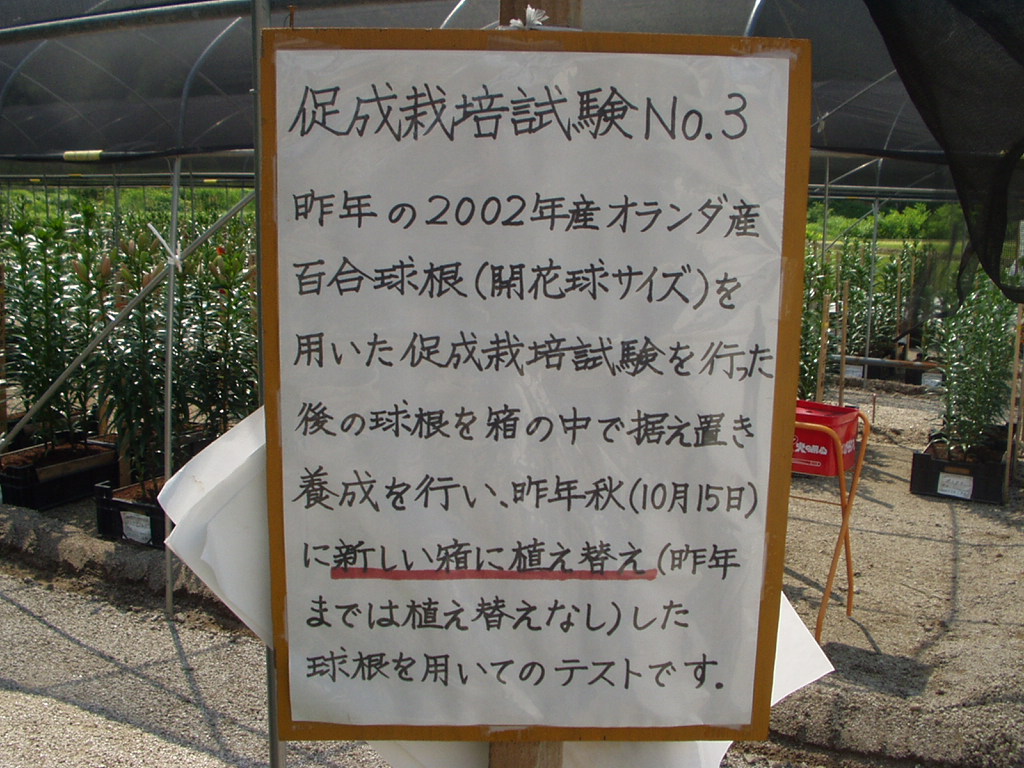 促成栽培試験No.3
昨年の2002年産オランダ産
百合球根(開花球サイズ)を
用いた促成栽培試験を行った
後の球根を箱の中で据え置き
養成を行い、昨年秋(10月15日)
に新しい箱に植え替え(昨年
までは植え替えなし)した
球根を用いてのテストです.